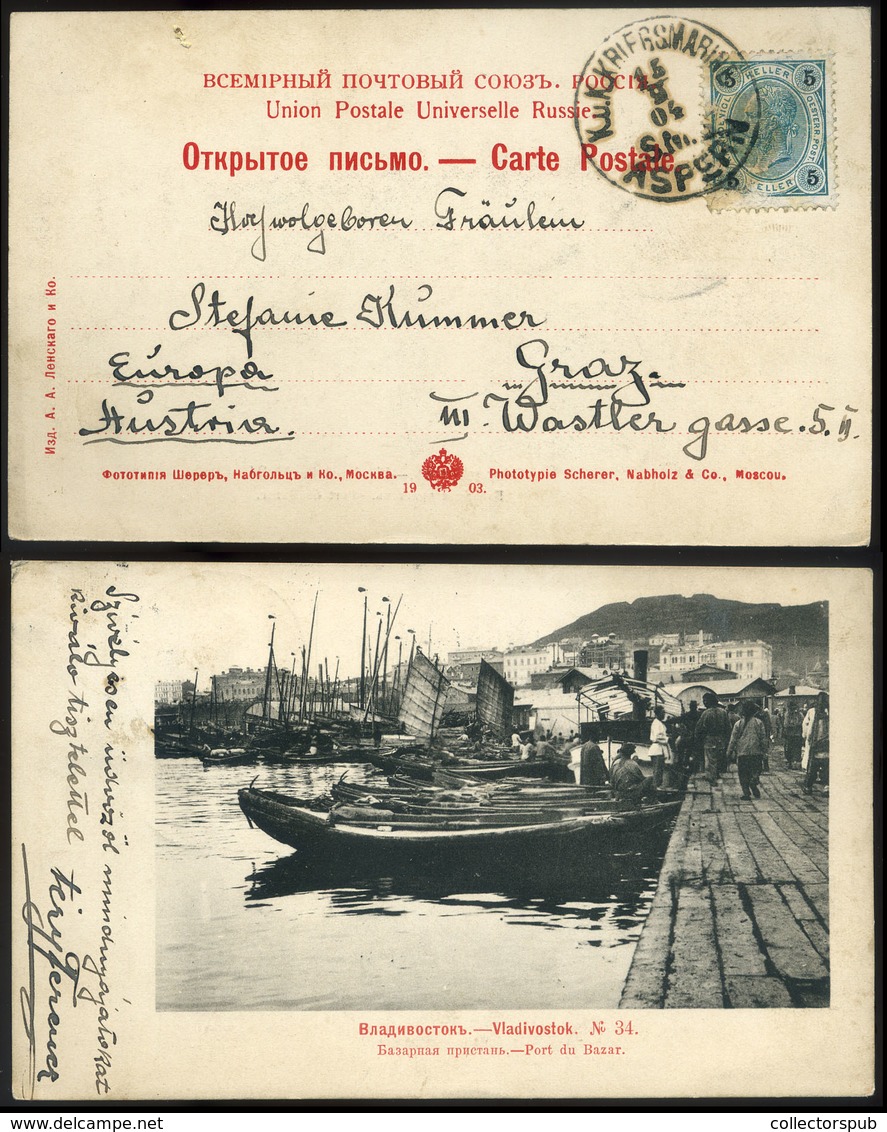 ВСЕМІРНЫЙ ПОЧТОВЫЙ СОЮЗЪ. РОССІЯ.
Union Postale Universelle Russie.
Открытое письмо. — Carte Postale.
K.u.K. KRIEGSMARINE
S.M.S.
ASPERN
5 HELLER 5
OESTERR. POST.
5 HELLER 5
Hochwolgeboren Fräulein
Stefanie Kummer
Europa Graz.
Austria. III. Wastler gasse. 5. II.
Изд. А. А. Ленскаго и Ко.
Фототипія Шереръ, Набгольцъ и Ко., Москва. Phototypie Scherer, Nabholz & Co., Moscou.
19 03.
Szivélyesen üdvözöl mindnyájatokat
kiváló tisztelettel
Владивостокъ.—Vladivostok. № 34.
Базарная пристань.—Port du Bazar.
collectorspub